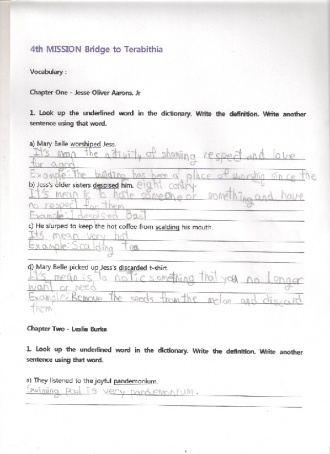 4th MISSION Bridge to Terabithia
Vocabulary :
Chapter One - Jesse Oliver Aarons, Jr
1. Look up the underlined word in the dictionary. Write the definition. Write another
sentence using that word.
a) Mary Belle worshiped Jess.
It's mean the activity of showing respect and love
for a god
Example: The building has been a place of worship since the
b) Jess's older sisters despised him. eight century.
It's mean is to hate someone or something and have
no respect for them
Example: I despised
c) He slurped to keep the hot coffee from scalding his mouth.
It's mean very hot
Example: Scalding tea
d) Mary Belle picked up Jess's discarded t-shirt.
It's mean is to something that you no longer
want or need
Example: Remove the seeds from the melon and discard
them
Chapter Two - Leslie Burke
1. Look up the underlined word in the dictionary. Write the definition. Write another
sentence using that word.
a) They listened to the joyful pandemonium.
Swimming Pool is very pandemonium.